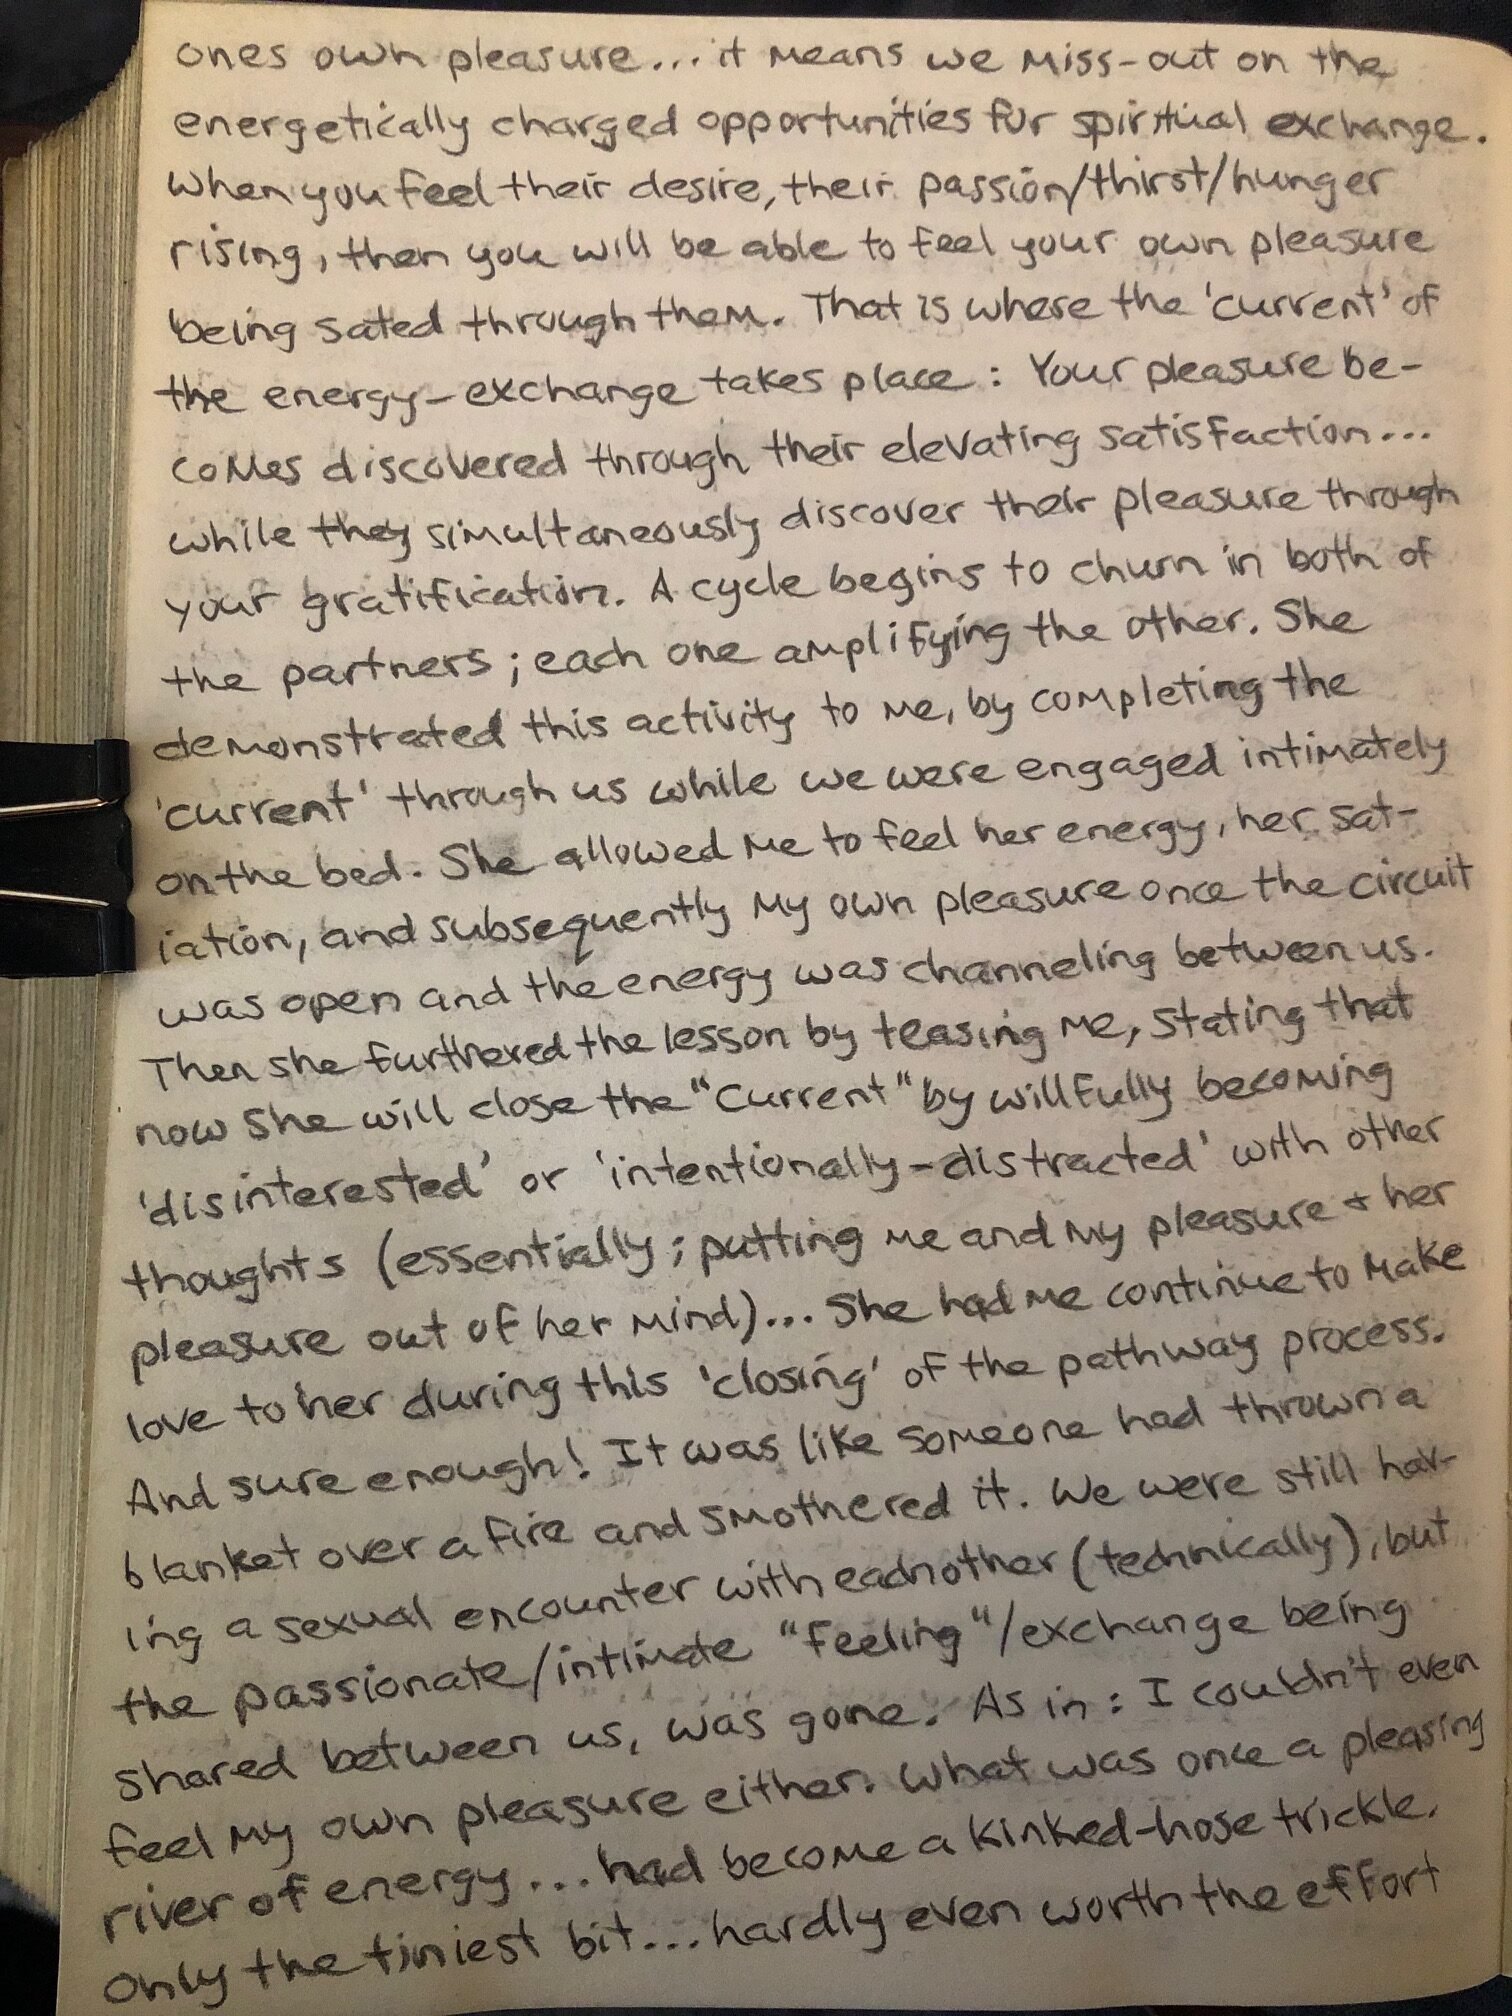 ones own pleasure... it means we miss-out on the
energetically charged opportunities for spiritual exchange.
When you feel their desire, their passion/thirst/hunger
rising, then you will be able to feel your own pleasure
being sated through them. That is where the 'current' of
the energy-exchange takes place: Your pleasure be-
comes discovered through their elevating satisfaction...
while they simultaneously discover their pleasure through
your gratification. A cycle begins to churn in both of
the partners; each one amplifying the other. She
demonstrated this activity to me, by completing the
'current' through us while we were engaged intimately
on the bed. She allowed me to feel her energy, her sat-
iation, and subsequently my own pleasure once the circuit
was open and the energy was channeling between us.
Then she furthered the lesson by teasing me, stating that
now she will close the "current" by willfully becoming
'disinterested' or 'intentionally-distracted' with other
thoughts (essentially; putting me and my pleasure + her
pleasure out of her mind)... She had me continue to make
love to her during this 'closing' of the pathway process.
And sure enough! It was like someone had thrown a
blanket over a fire and smothered it. We were still hav-
ing a sexual encounter with eachother (technically), but
the passionate/intimate "feeling"/exchange being
shared between us, was gone. As in: I couldn't even
feel my own pleasure either. What was once a pleasing
river of energy... had become a kinked-hose trickle.
Only the tiniest bit... hardly even worth the effort